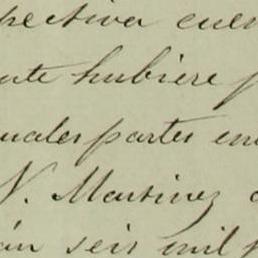 pectiva cuen
ute hubiere p
uales partes en
N. Martinez
án seis mil p